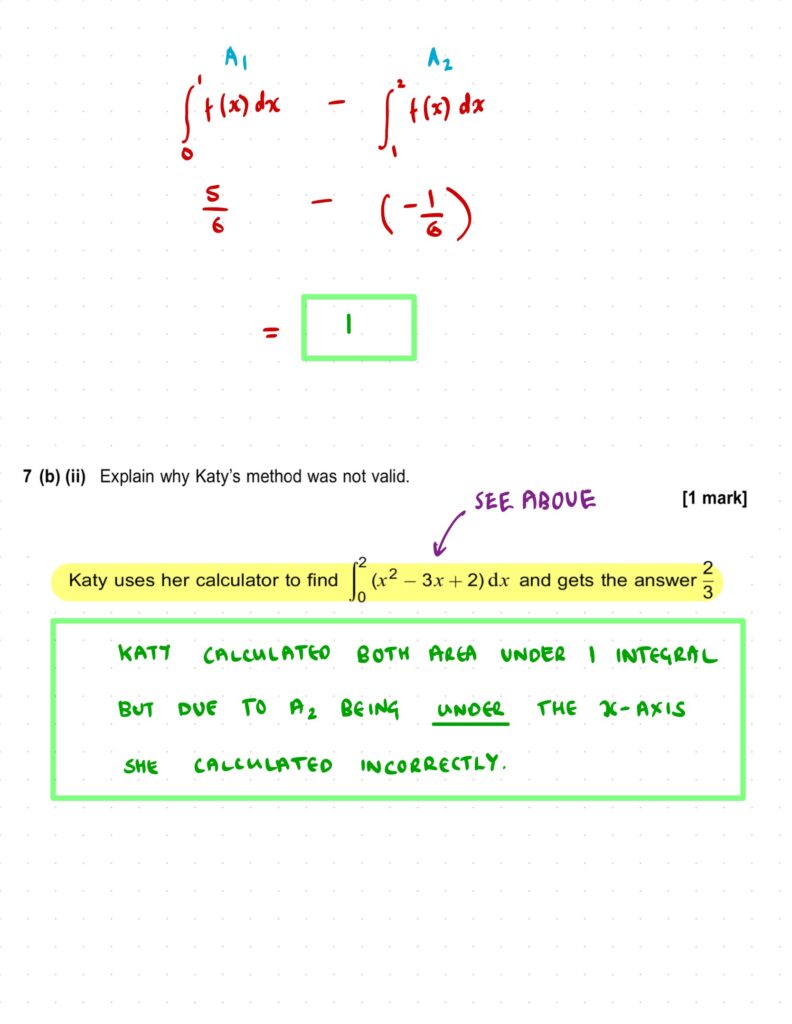 A₁ A₂
∫₀¹ f(x) dx − ∫₁² f(x) dx
5/6 − (−1/6)
= 1
7 (b) (ii) Explain why Katy's method was not valid.
SEE ABOVE [1 mark]
Katy uses her calculator to find ∫₀² (x² − 3x + 2) dx and gets the answer 2/3
KATY CALCULATED BOTH AREA UNDER 1 INTEGRAL
BUT DUE TO A₂ BEING UNDER THE X-AXIS
SHE CALCULATED INCORRECTLY.